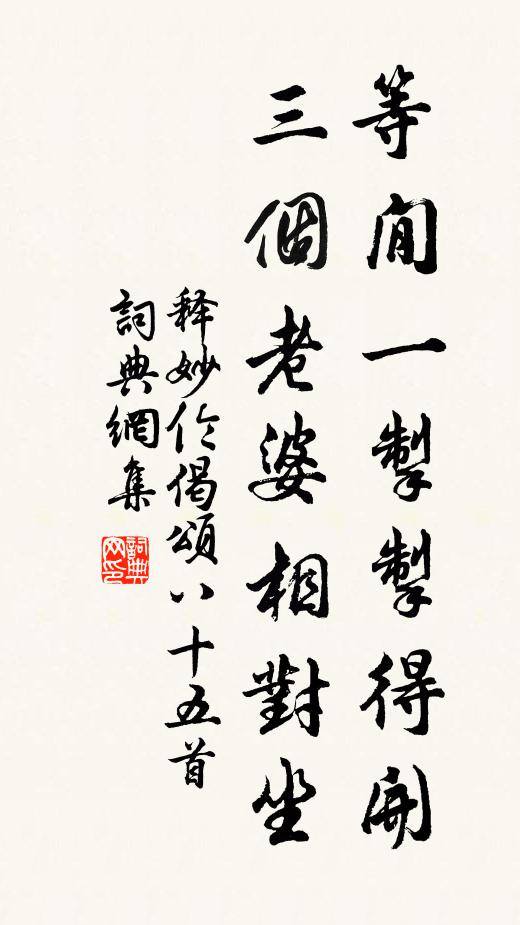 等閒一掣掣得開
三個老婆相對坐
释妙伦偈頌八十五首
詞典網集
詞典网印